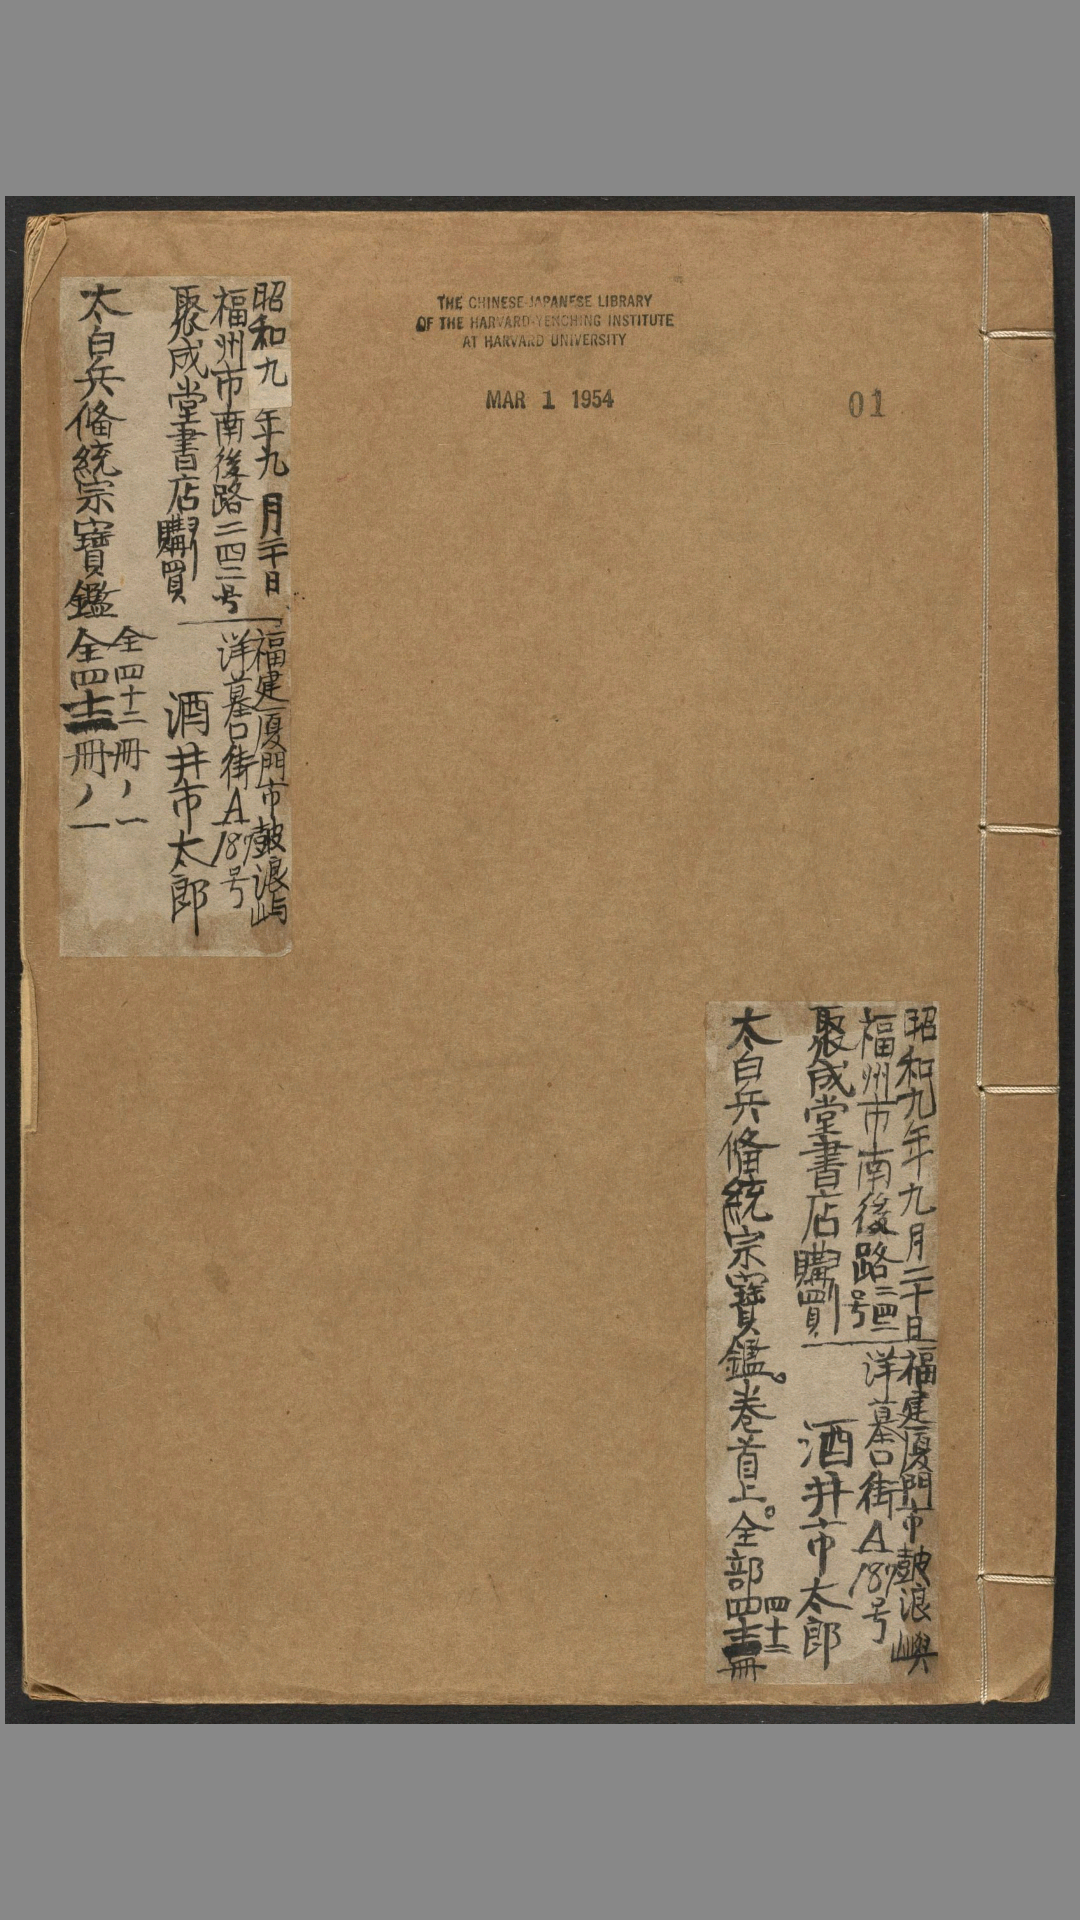 THE CHINESE-JAPANESE LIBRARY
OF THE HARVARD-YENCHING INSTITUTE
AT HARVARD UNIVERSITY
MAR 1 1954
01
昭和九年九月二十日
福州市南後路二四二号
聚成堂書店購買
福建厦門市鼓浪嶼
洋墓口街A187号
酒井市太郎
太白兵偹統宗寶鑑
全四十二冊ノ一
全四十二冊ノ一
昭和九年九月二十日
福州市南後路二四二号
聚成堂書店購買
福建厦門市鼓浪嶼
洋墓口街A187号
酒井市太郎
太白兵偹統宗寶鑑。卷首上。全部四十二冊
四十二